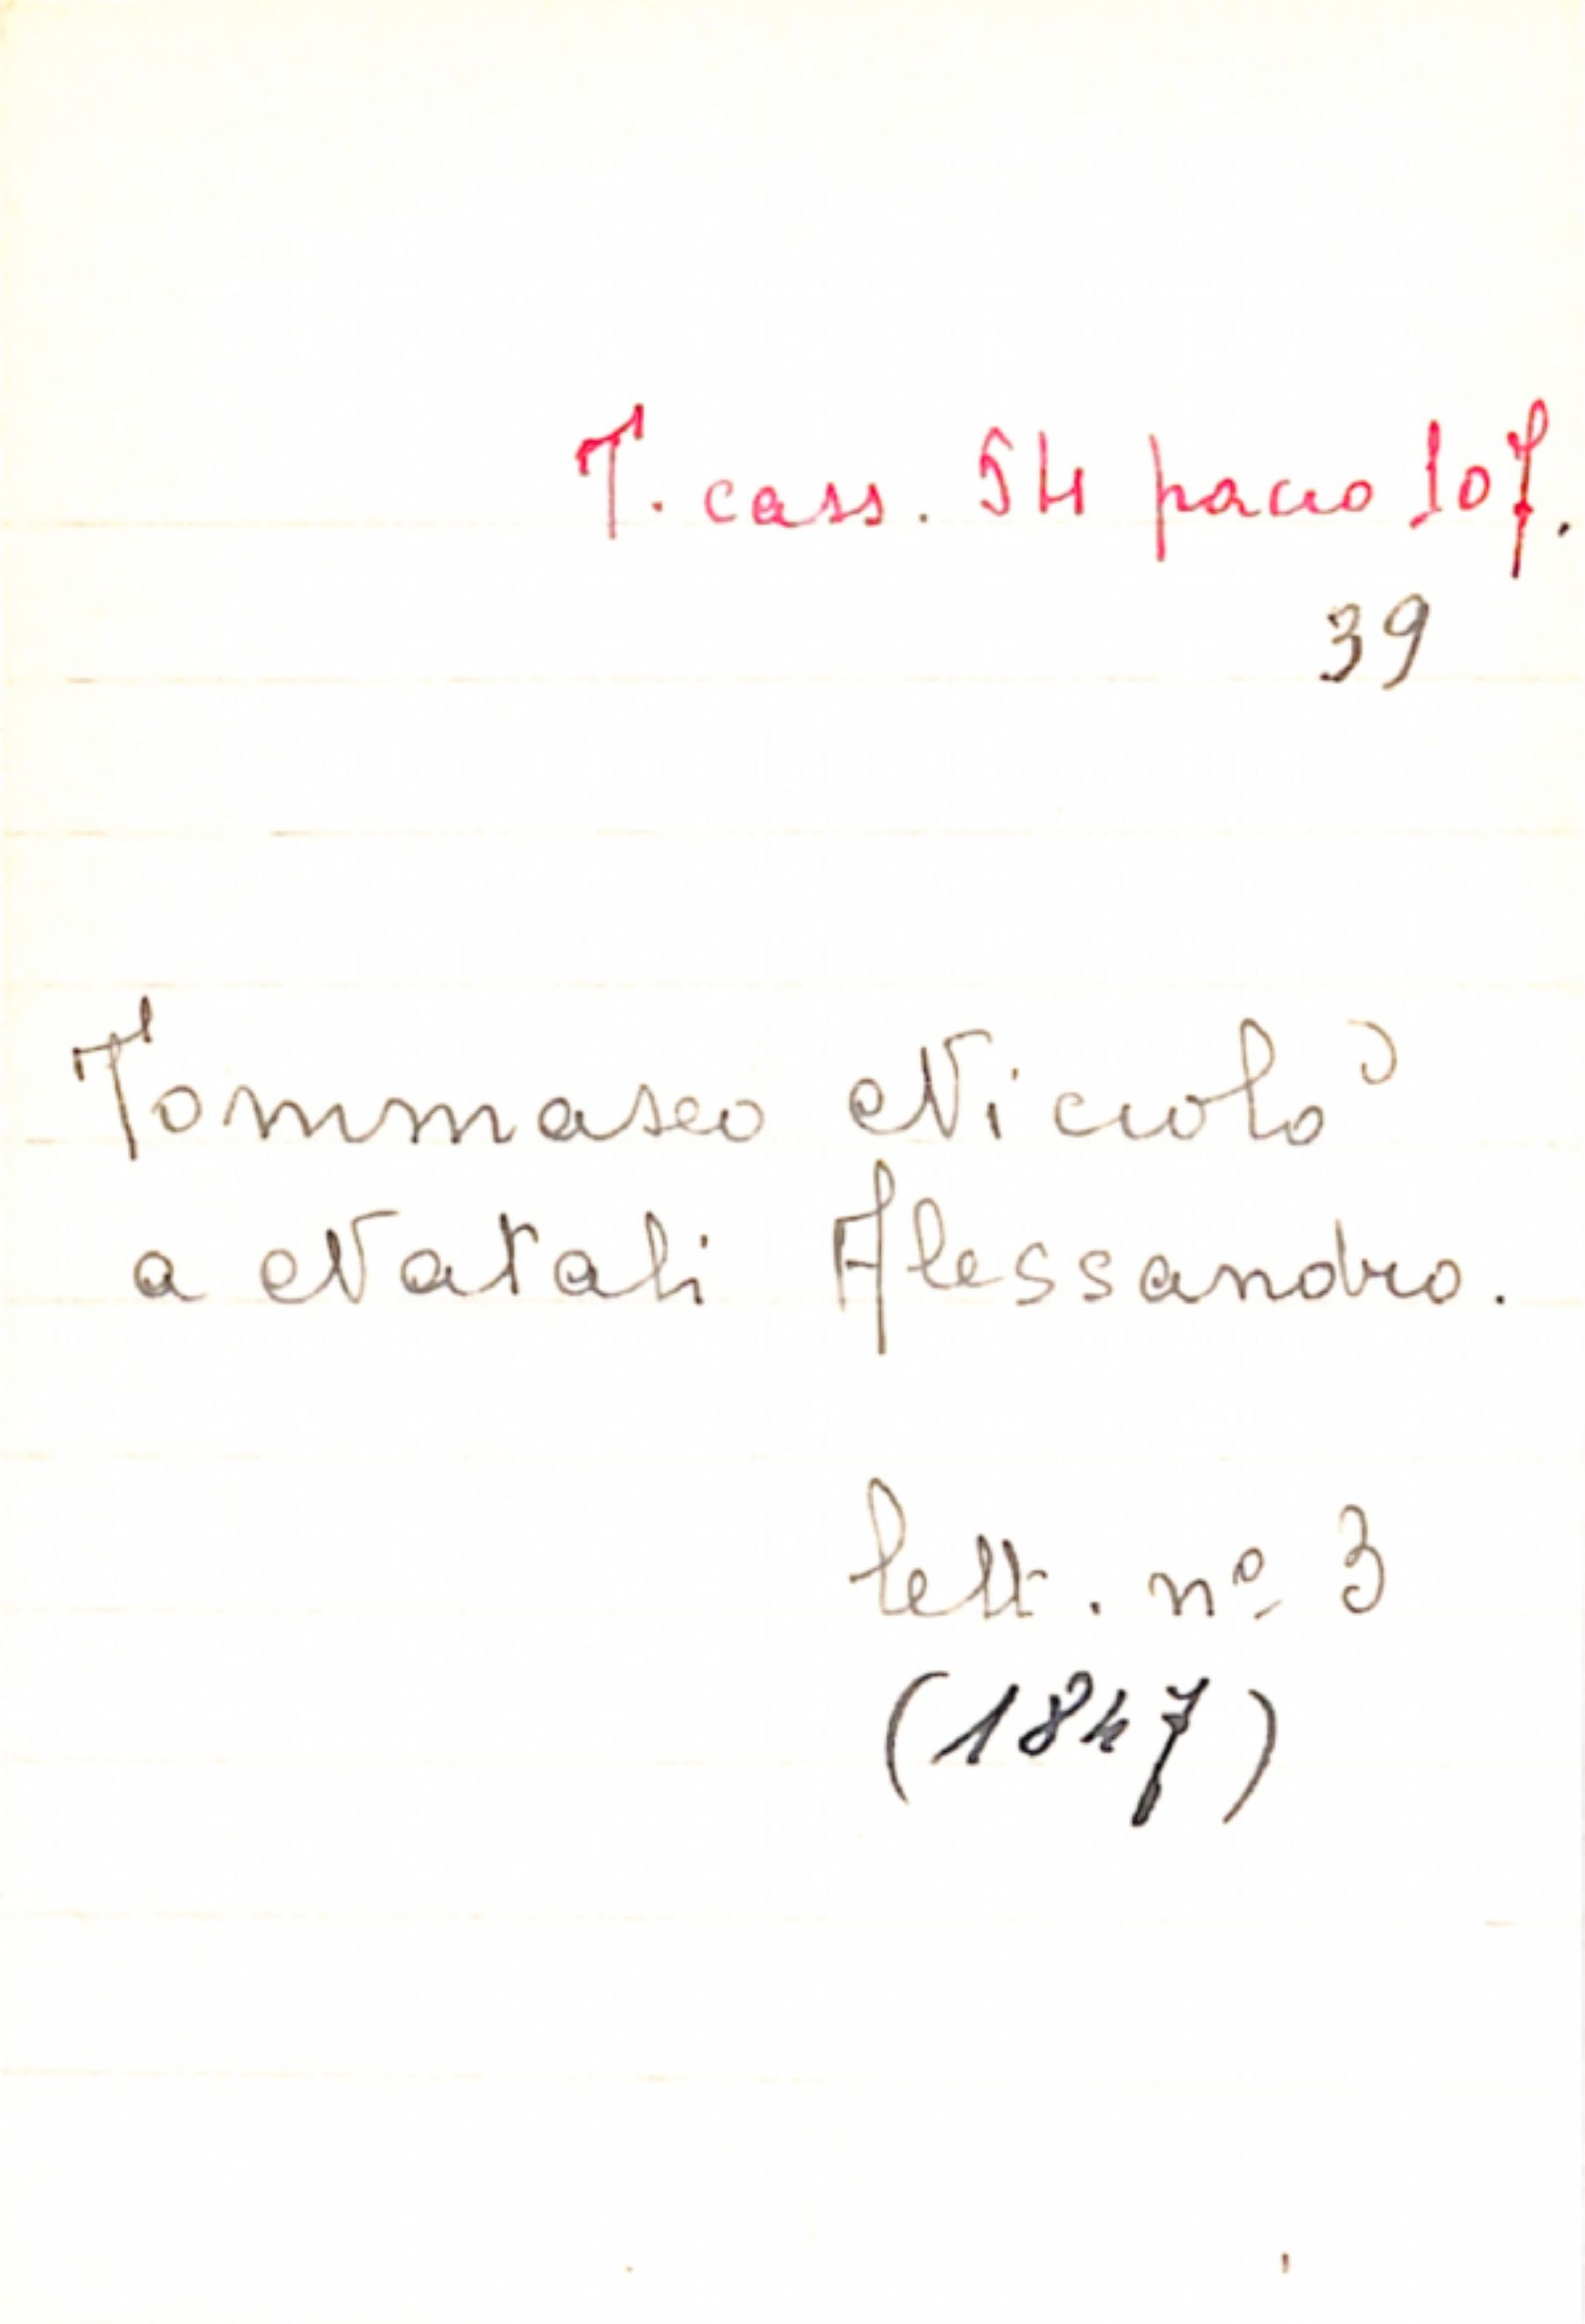 T. cass. 54 pacco 107.
39
Tommaseo Niccolò
a Natali Alessandro.
lett. nº 3
(1847)